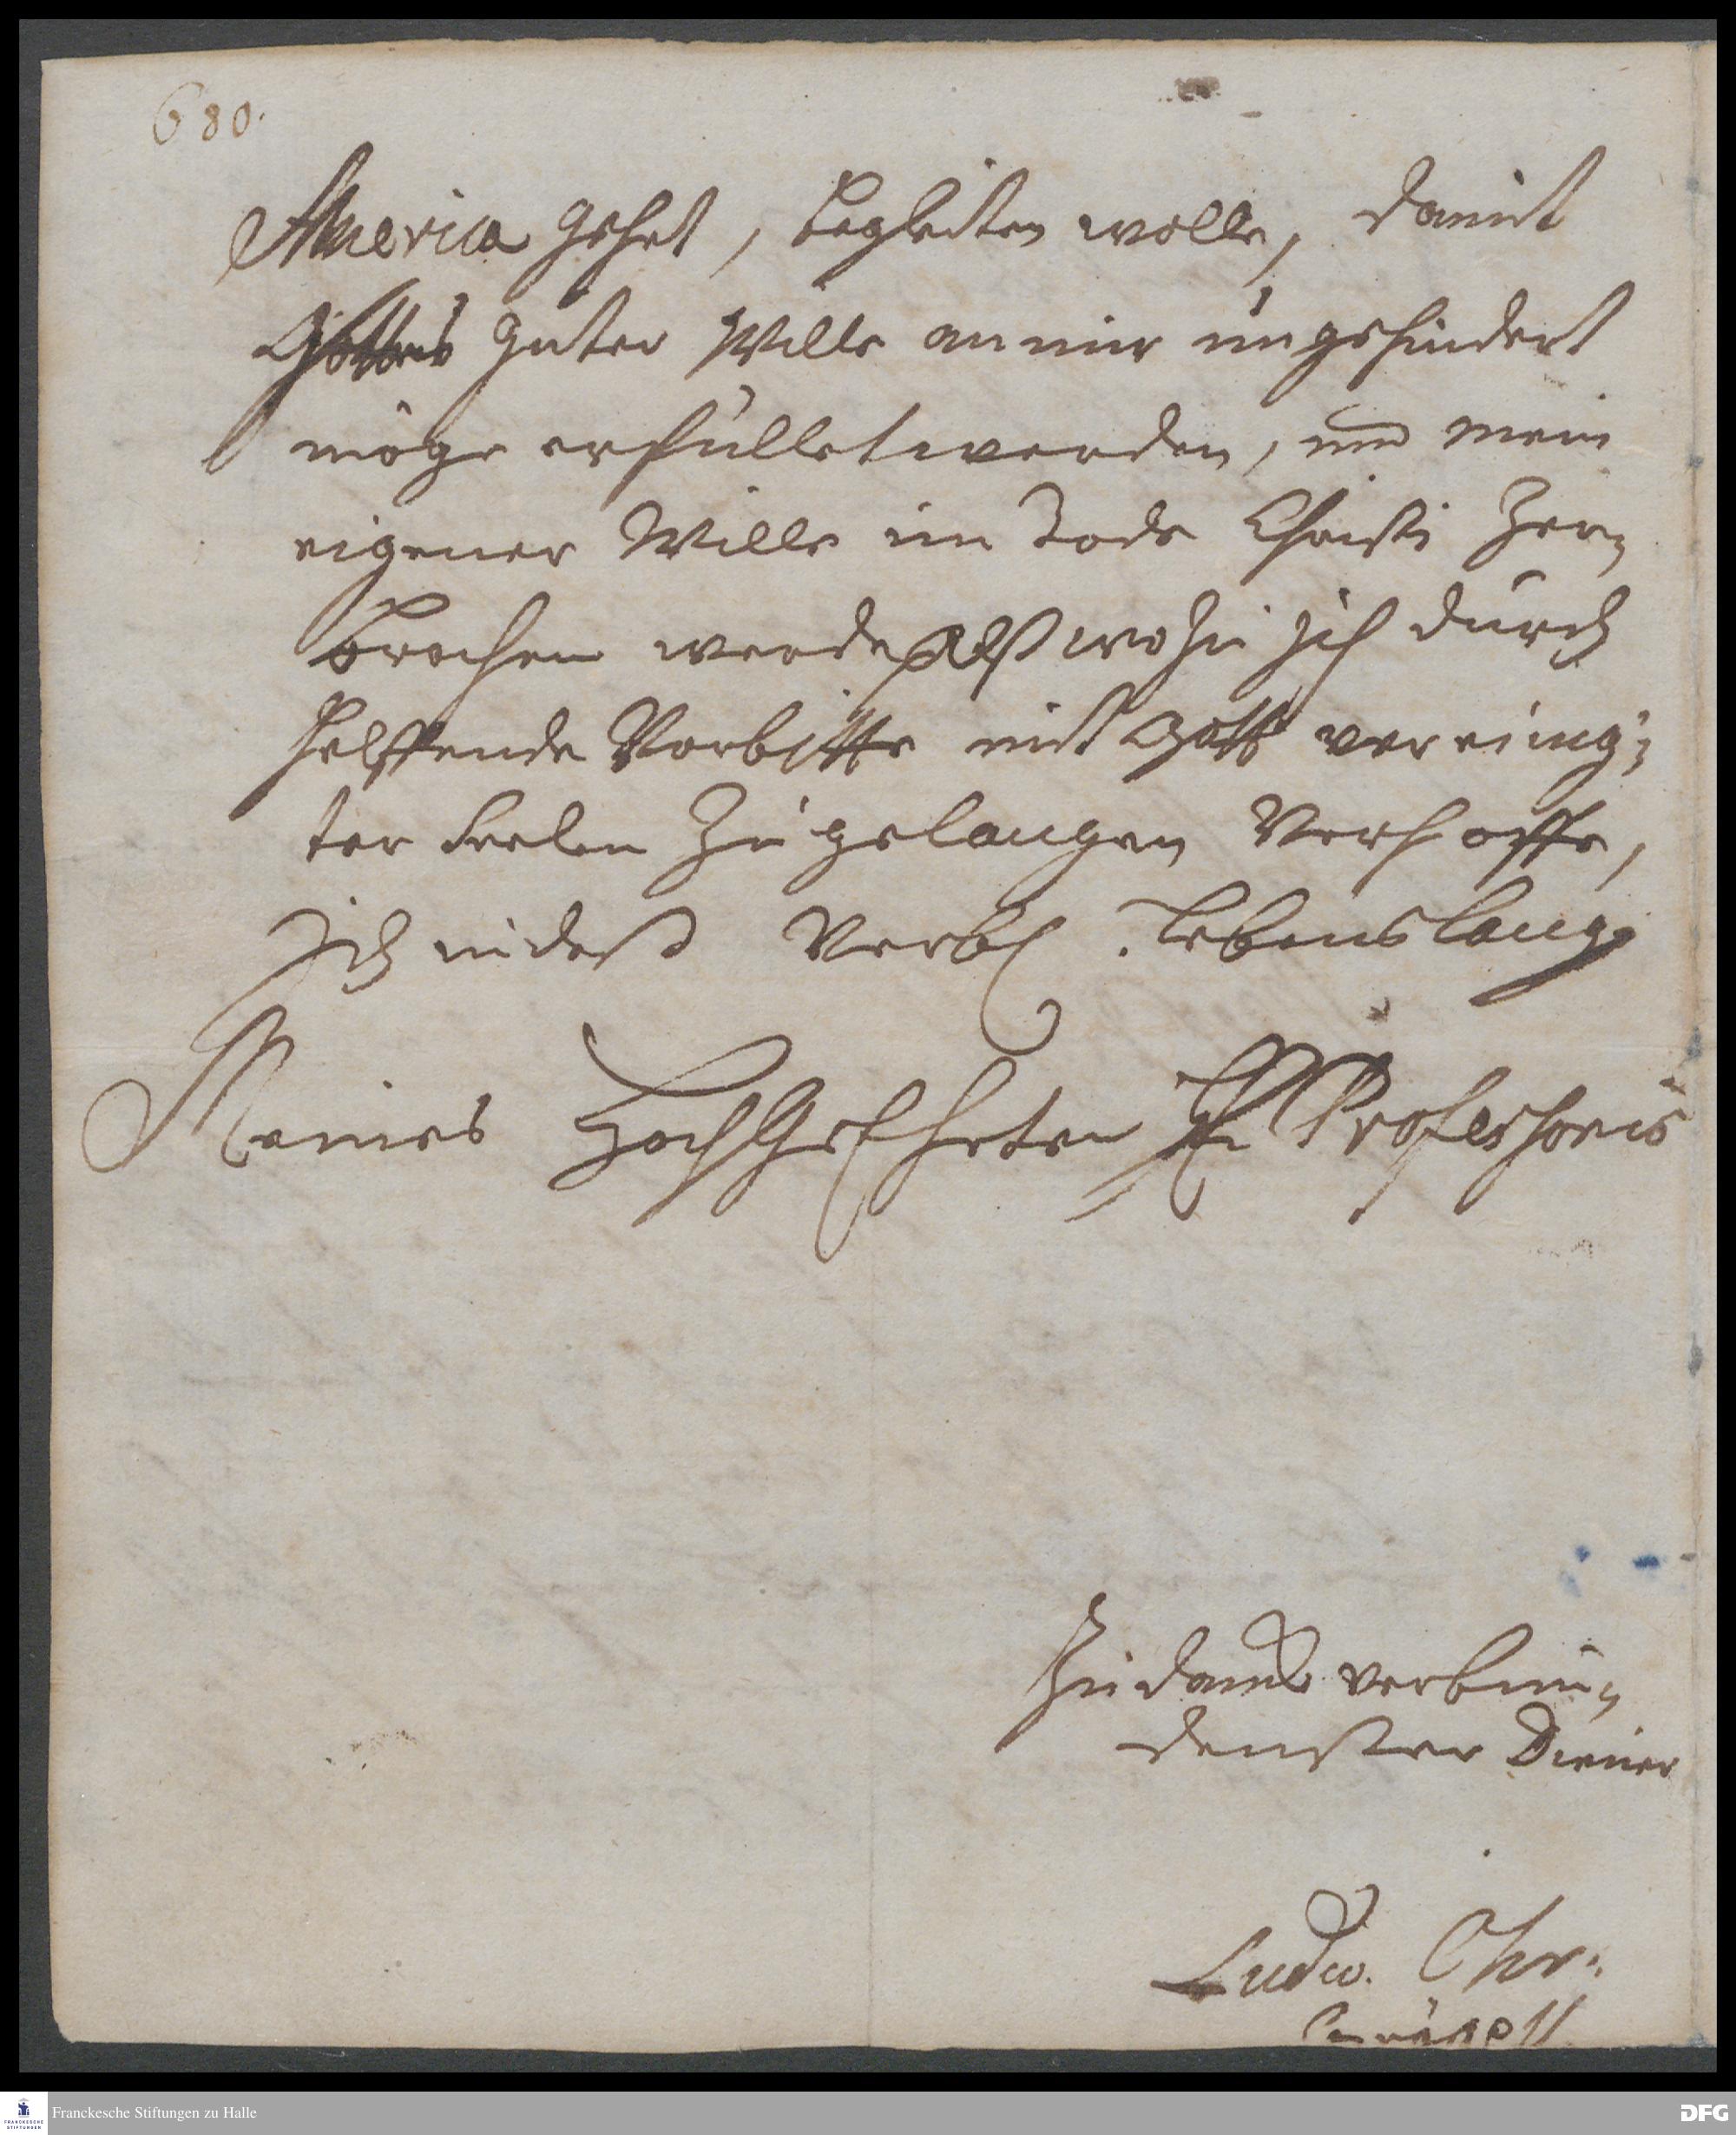 680.
America gehet, begleiten wolle, damit
Gottes guter Wille an mir ungehindert
möge erfüllet werden, und mein
eigener Wille im Tode Christi zer-
brochen werde, wohin ich durch
helffende Vorbitte mit Gott vereinig-
ter Seelen zu gelangen Verhoffe,
Ich indeß Verbl. Lebenslang
Meines HochGeEhrten H Professoris
Zu danck verbun-
denster Diener
Ludw. Chr.
Franckesche Stiftungen zu Halle
FRANCKESCHE
STIFTUNGEN
DFG